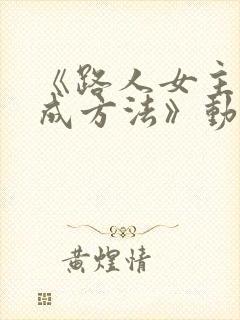 《路人女主
成方法》動
黄煌情